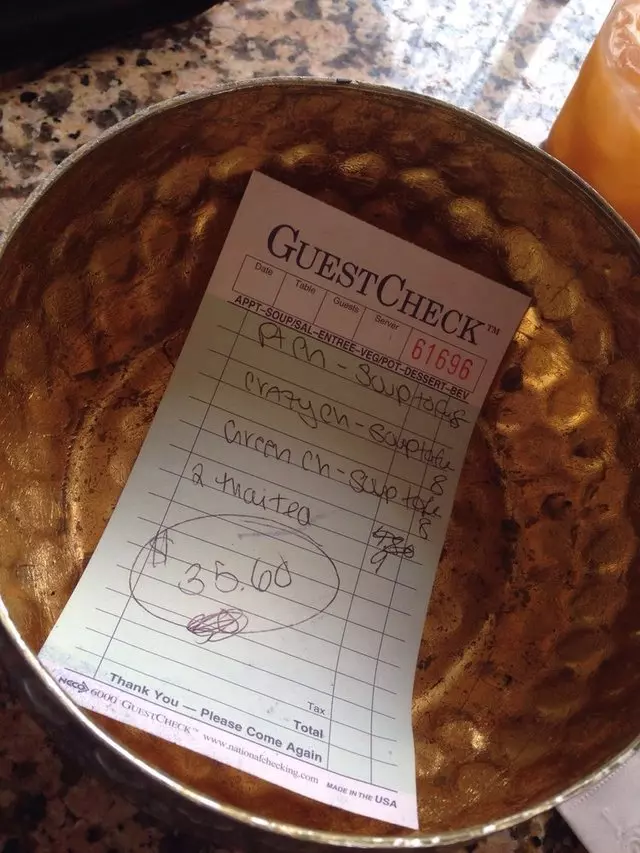 GUESTCHECK™
Date Table Guests Server 61696
APPT-SOUP/SAL-ENTREE-VEG/POT-DESSERT-BEV
Ch - Soup tofu 8
crazy ch - soup tofu 8
Green ch - soup tofu 8
2 thai tea 9
$ 35.60
Tax
Total
Thank You — Please Come Again
NCCO 6000 GUESTCHECK™ www.nationalchecking.com MADE IN THE USA